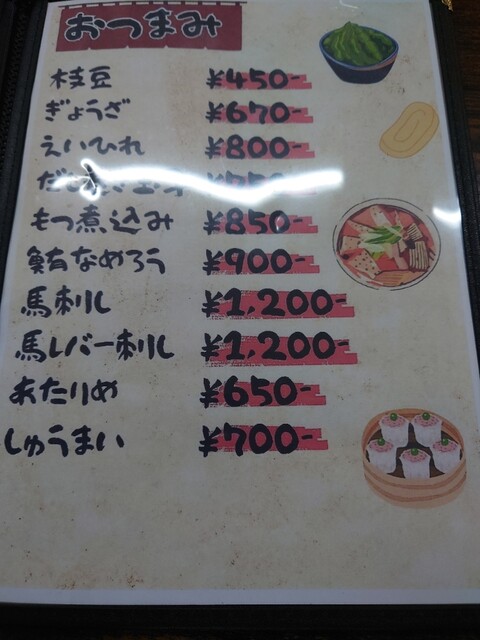 おつまみ
枝豆 ¥450-
ぎょうざ ¥670-
えいひれ ¥800-
もつ煮込み ¥850-
鮪なめろう ¥900-
馬刺し ¥1,200-
馬レバー刺し ¥1,200-
あたりめ ¥650-
しゅうまい ¥700-